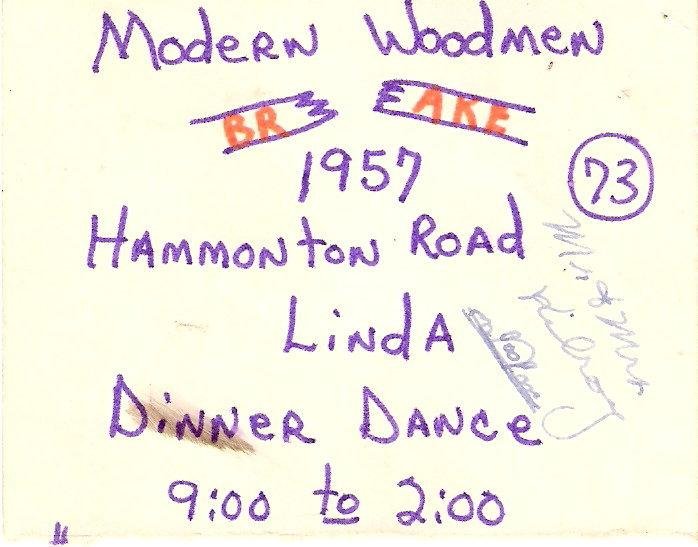 Modern Woodmen
BR AKE
1957
73
Hammonton Road
Linda
Dinner Dance
9:00 to 2:00
Mr & Mrs